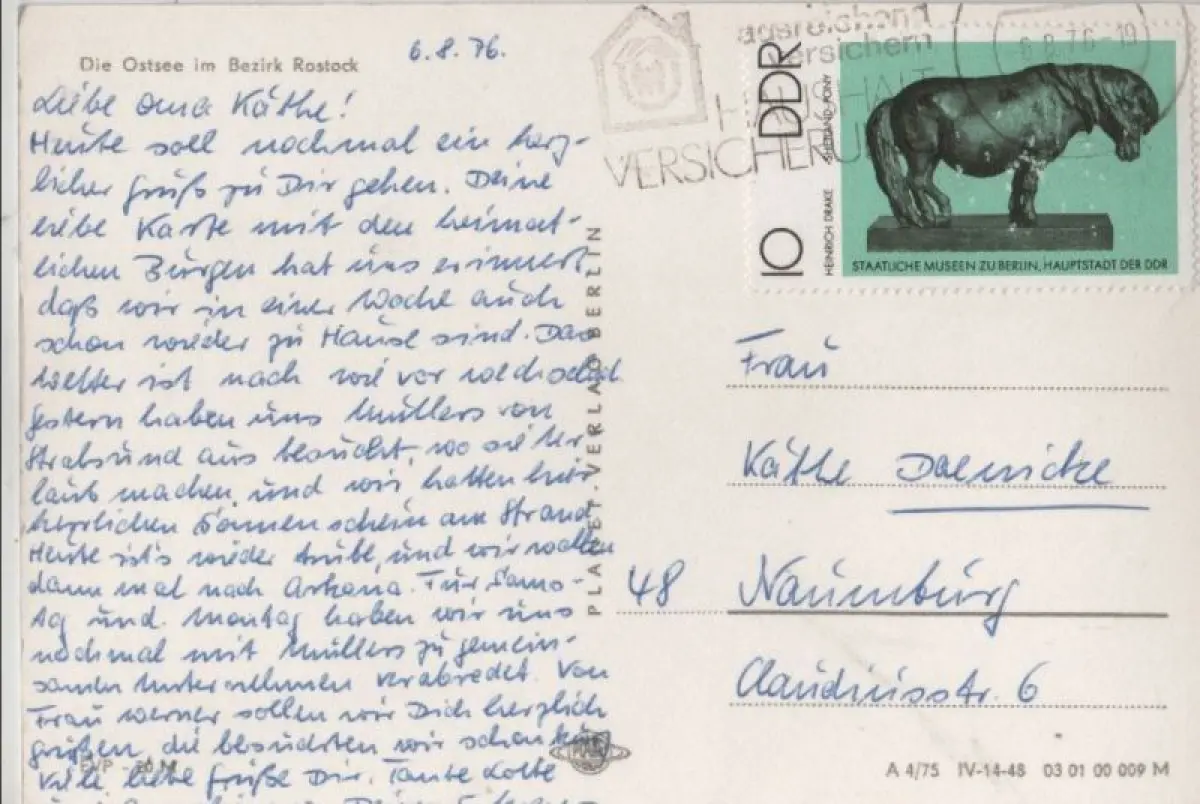 Die Ostsee im Bezirk Rostock
6.8.76.
Liebe Oma Käthe!
Heute soll nochmal ein herz-
licher Gruß zu Dir gehen. Deine
liebe Karte mit den heimat-
lichen Burgen hat uns erinnert,
daß wir in einer Woche auch
schon wieder zu Hause sind. Das
Wetter ist nach wie vor
Gestern haben uns Müllers von
Stralsund aus besucht, wo sie Ur-
laub machen, und wir hatten hier
herrlichen Sonnenschein am Strand.
Heute ist's wieder trübe, und wir wollen
dann mal nach Arkona. Für Sams-
tag und Montag haben wir uns
nochmal mit Müllers zu gemein-
samen Unternehmen verabredet. Von
Frau Werner sollen wir Dich herzlich
grüßen, die besuchten wir schon
Viele liebe Grüße Dir, Tante Lotte
PLANET-VERLAG BERLIN
EVP
ausreichend
versichern
HAUSHALT
VERSICHERU
6.8.76-19
DDR
10
HEINRICH DRAKE
SHETLAND-PONY
STAATLICHE MUSEEN ZU BERLIN, HAUPTSTADT DER DDR
Frau
Käthe
48 Naumburg
Claudiusstr. 6
A 4/75 IV-14-48 03 01 00 009 M